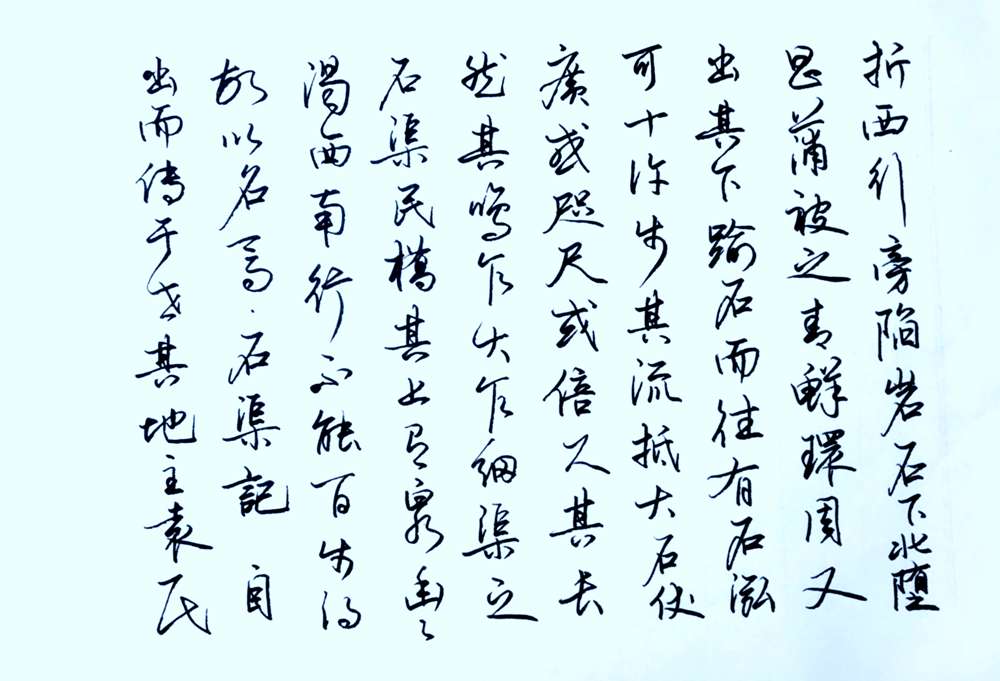 折西行旁陷岩石下北堕
昌蒲被之青鲜環周又
出其下踰石而往有石泓
可十许步其流抵大石伏
廣或咫尺或倍尺其长
然其鸣乍大乍细渠之
石渠民橋其上有泉幽々
渴西南行不能百步得
故以名焉·石渠記 自
出而傳于世其地主袁氏